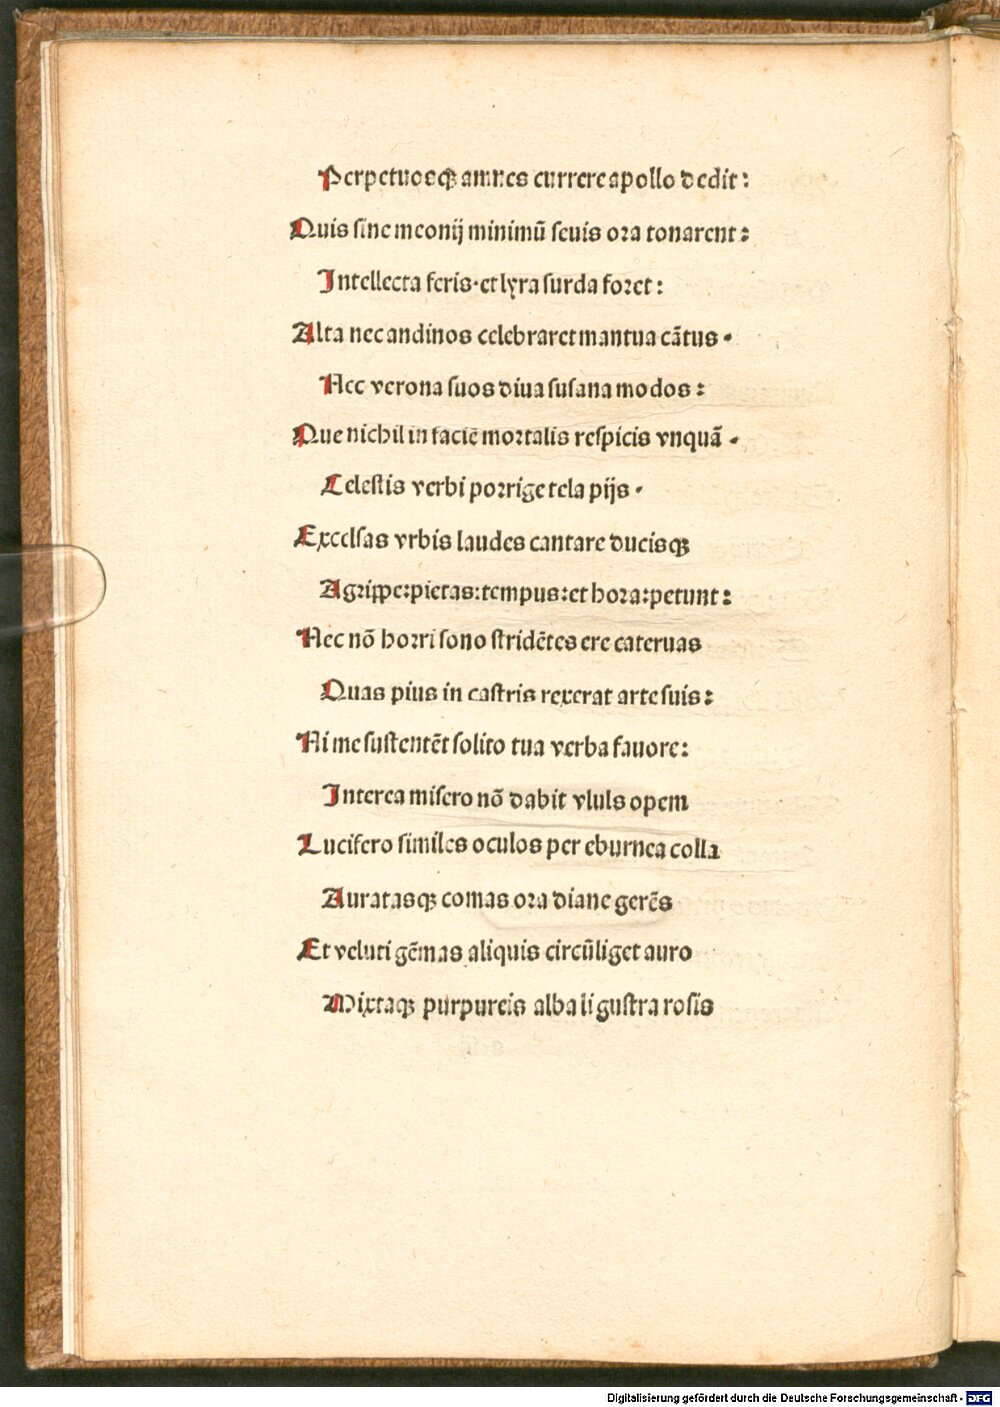 Perpetuosqꝫ amnes currere apollo dedit:
Quis sine meonij minimū seuis ora tonarent:
Intellecta feris·et lyra surda foret:
Alta nec andinos celebraret mantua cātus·
Nec verona suos diua susana modos:
Que nichil in faciē mortalis respicis vnquā·
Celestis verbi porrige tela pijs·
Excelsas vrbis laudes cantare ducisqꝫ
Agrippe:pietas:tempus:et hora:petunt:
Nec nō horri sono stridētes ere cateruas
Quas pius in castris rexerat arte suis:
Ni me sustentēt solito tua verba fauore:
Interea misero nō dabit vluls opem
Lucifero similes oculos per eburnea colla
Auratasqꝫ comas ora diane gerēs
Et veluti gēmas aliquis circūliget auro
Mixtaqꝫ purpureis alba ligustra rosis
Digitalisierung gefördert durch die Deutsche Forschungsgemeinschaft - DFG